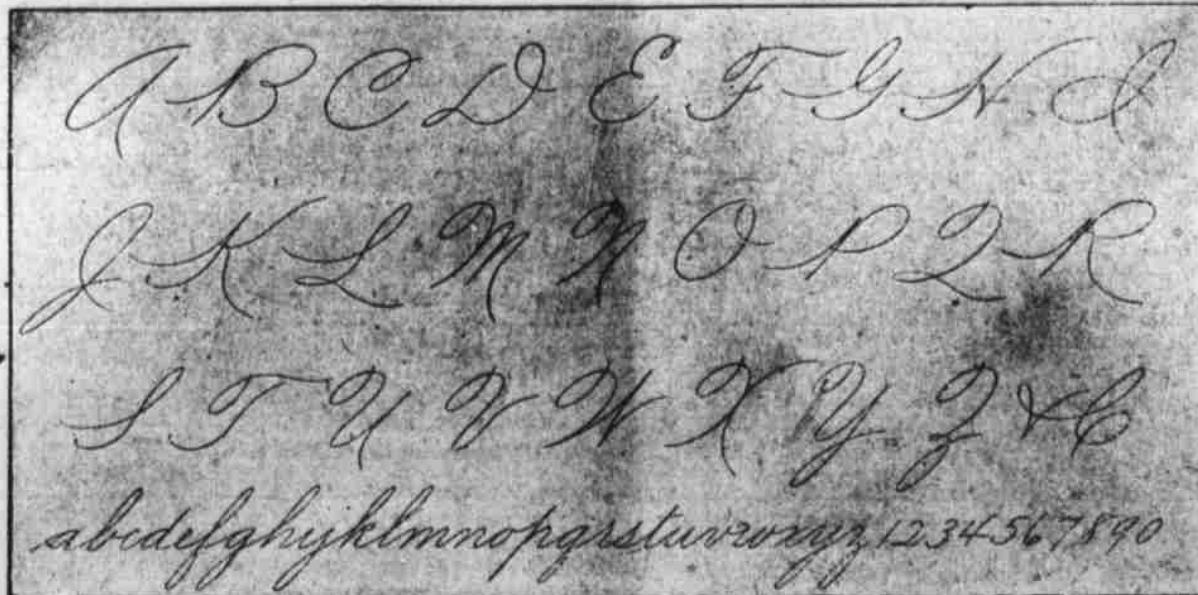 A B C D E F G H I
J K L M N O P Q R
S T U V W X Y Z &C
abcdefghijklmnopqrstuvwxyz 1234567890